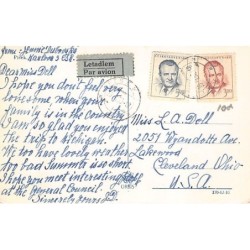 Letadlem
Par avion
Dear Miss Doll
I hope you don't feel very
lonesome, when your
family is in the country
I am so glad you enjoyed
the trip to Michigan.
We too have lovely weather,
too bad Summer is so short.
I hope you meet interesting
at the General Council.
Sincerely Yours
Miss L. A. Doll
2051 Wyandotte Ave
Lakewood
Cleveland Ohio
U.S.A.